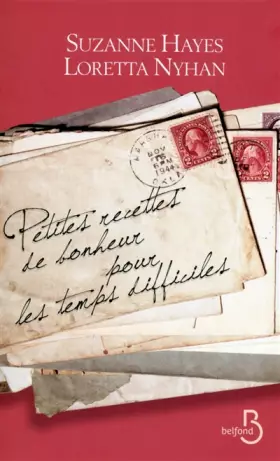 SUZANNE HAYES
LORETTA NYHAN
NOV
6 PM
1944
Petites recettes
de bonheur
pour
les temps difficiles
B
belfond